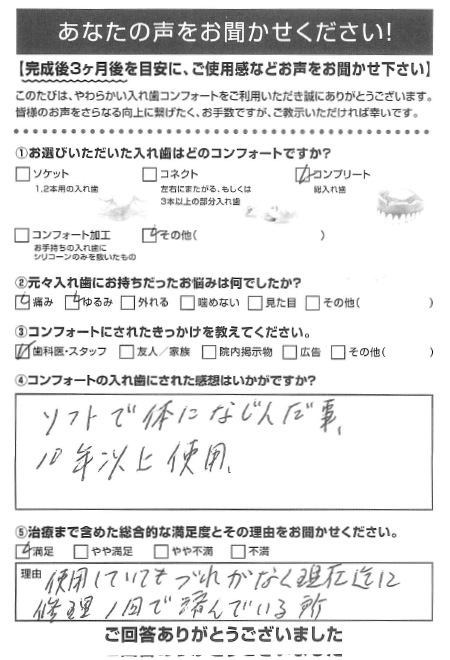 あなたの声をお聞かせください!
【完成後3ヶ月後を目安に、ご使用感などお声をお聞かせ下さい】
このたびは、やわらかい入れ歯コンフォートをご利用いただき誠にありがとうございます。
皆様のお声をさらなる向上に繋げたく、お手数ですが、ご教示いただければ幸いです。
①お選びいただいた入れ歯はどのコンフォートですか?
ソケット コネクト コンプリート
1,2本用の入れ歯 左右にまたがる、もしくは 総入れ歯
3本以上の部分入れ歯
コンフォート加工 その他( )
お手持ちの入れ歯に
シリコーンのみを敷いたもの
②元々入れ歯にお持ちだったお悩みは何でしたか?
痛み ゆるみ 外れる 噛めない 見た目 その他( )
③コンフォートにされたきっかけを教えてください。
歯科医・スタッフ 友人/家族 院内掲示物 広告 その他( )
④コンフォートの入れ歯にされた感想はいかがですか?
ソフトで体になじんだ事、
10年以上使用、
⑤治療まで含めた総合的な満足度とその理由をお聞かせください。
満足 やや満足 やや不満 不満
理由 使用していてもづれがなく現在迄に
修理1回で済んでいる所
ご回答ありがとうございました